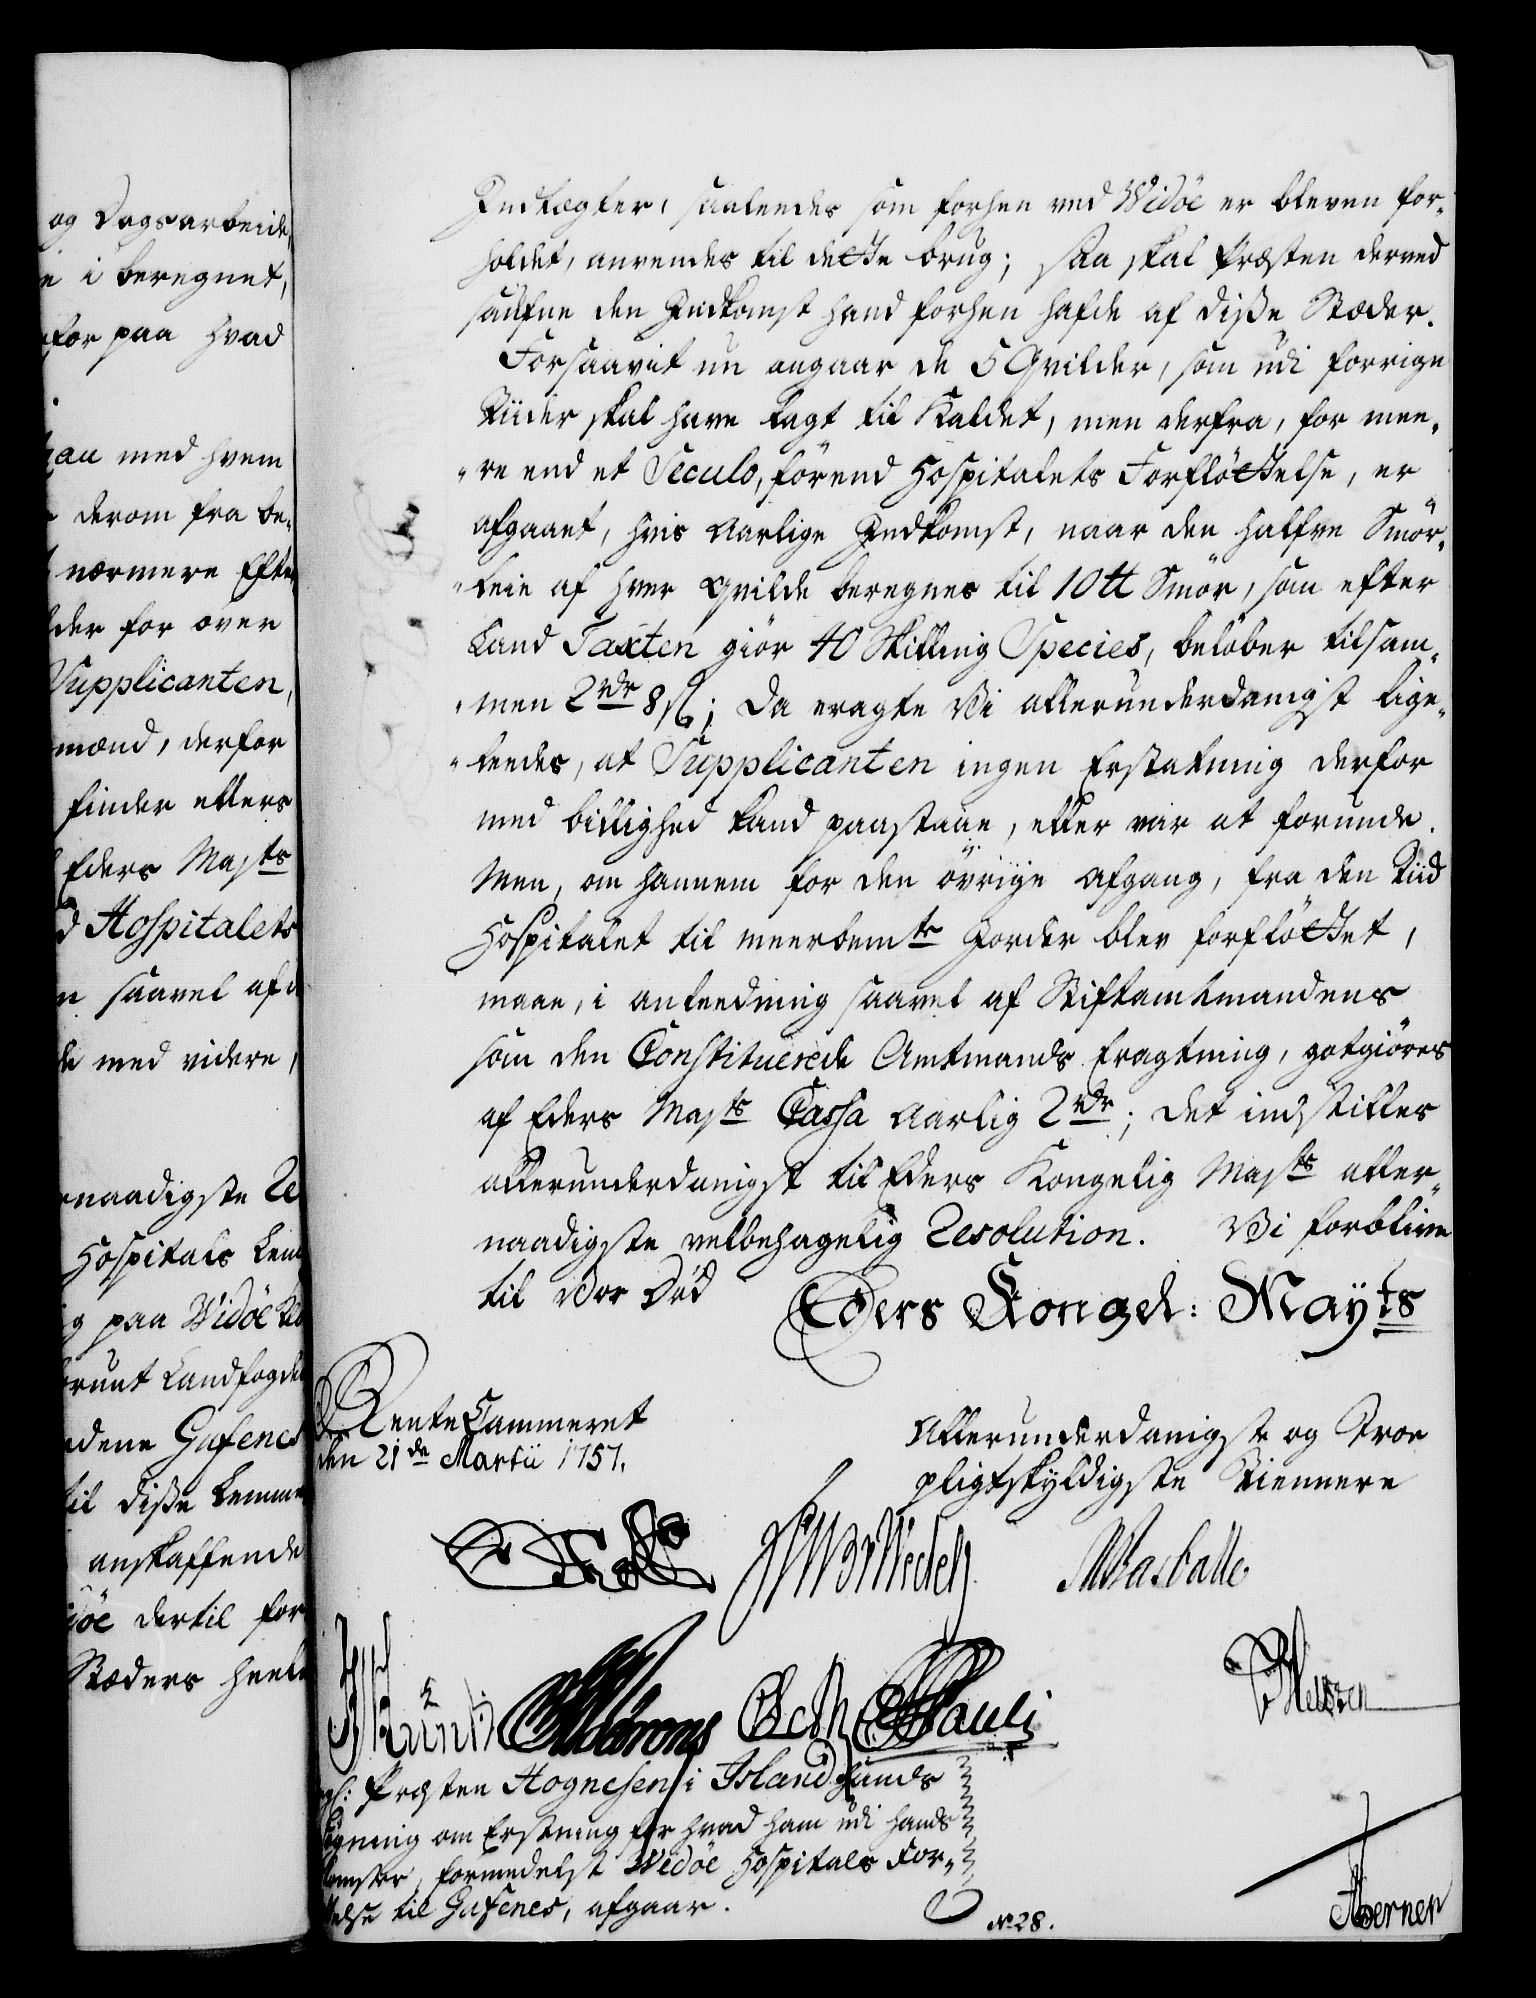 og Dagsarbeide,
e i beregnet,
for paa hvad
hau med hvem
derom fra be„
nærmere Efte
der for over
Supplicanten,
mænd, derfor
finder ellers
Eders Maj:ts
d Hospitalets
saavel af d
de med videre,
naadigste Re
Hospitals Lem
g paa Widöe
Landfogde
dene Gufenes
til diße Lemme
anskaffende
döe dertil for
Stæders heele
Indtægter, saaleedes som forhen ved Widöe er bleven for„
holdet, anvendes til dette brug; saa skal Præsten derved
saufne den Indkomst hand forhen hafde af diße Stæder.
Forsaavit nu angaar de 5 Qvilder, som udi forrige
Tiider skal have lagt til Kaldet, men derfra, for mee„
„re end et Seculo, förend Hospitalets Forflöttelse, er
afgaaet, hvis Aarlige Indkomst, naar den halfve Smör„
„leie af hver Qvilde beregnes til 10 tt Smör, som efter
Land Taxten giör 40 Skilling Species, belöber tilsam„
„men 2 rdr 8 ß; Da eragte Vi allerunderdanigst lige„
„leedes, at Supplicanten ingen Erstatning derfor
med billighed kand paastaae, eller var at forunde.
Men, om hannem for den övrige afgang, fra den Tiid
Hospitalet til meerbem:te Jorder blev forflöttet,
maae, i anleedning saavel af Stiftamtmandens
som den Constituerede Amtmands Eragtning, gotgiöres
af Eders Maj:ts Cassa Aarlig 2 rdr; det indstilles
allerunderdanigst til Eders Kongelig Maj:ts aller„
naadigste velbehagelig Resolution. Vi forblive
til Vor Död
Eders Kongel: May:ts
RenteCammeret
den 21de Martii 1757.
Allerunderdanigste og Troe
pligtskyldigste Tiennere
Wedell
Rasballe
Pauli
Præsten Hognesen i Island hands
gning om Erstning for hvad ham udi hands
komster, formedelst Widöe Hospitals For„
telse til Gufenes, afgaar.
No 28.